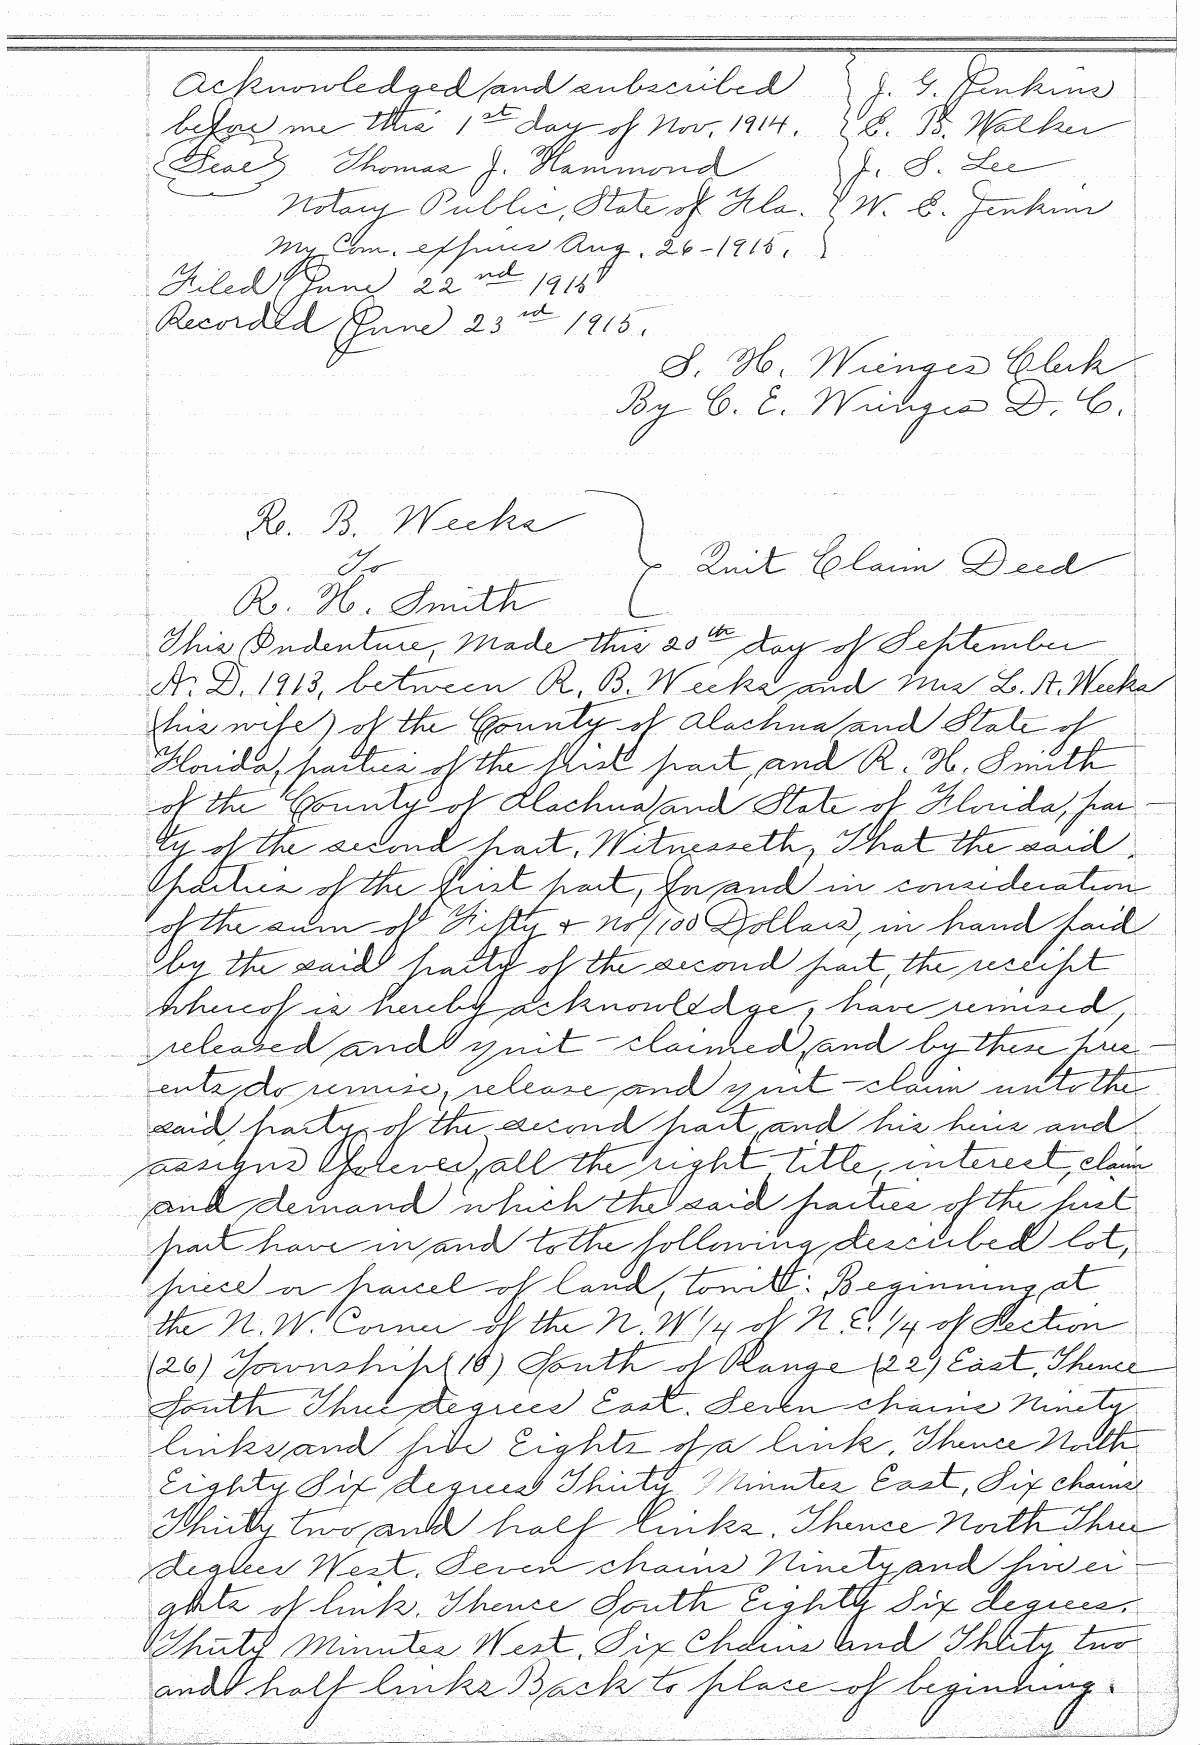 Acknowledged and subscribed } J. G. Jenkins
before me this 1st day of Nov. 1914. } E. B. Walker
(Seal) Thomas J. Hammond } J. S. Lee
Notary Public, State of Fla. } W. E. Jenkins
My Com. expires Aug. 26-1915. }
Filed June 22nd 1915
Recorded June 23rd 1915.
S. H. Wienges Clerk
By C. E. Wienges D. C.
R. B. Weeks
To } Quit Claim Deed
R. H. Smith
This Indenture, Made this 20th day of September
A. D. 1913, between R. B. Weeks and Mrs L. A. Weeks
(his wife) of the County of Alachua and State of
Florida, parties of the first part, and R. H. Smith
of the County of Alachua and State of Florida, par-
ty of the second part, Witnesseth, That the said
parties of the first part, for and in consideration
of the sum of Fifty & no/100 Dollars, in hand paid
by the said party of the second part, the receipt
whereof is hereby acknowledge, have remised,
released and quit-claimed, and by these pres-
ents do remise, release and quit-claim unto the
said party of the second part, and his heirs and
assigns forever, all the right, title, interest, claim
and demand which the said parties of the first
part have in and to the following described lot,
piece or parcel of land, towit: Beginning at
the N. W. Corner of the N. W 1/4 of N. E. 1/4 of Section
(26) Township (10) South of Range (22) East, Thence
South Three degrees East. Seven chains Ninety
links and five Eights of a link. Thence North
Eighty Six degrees Thirty Minutes East, Six chains
Thirty two and half links. Thence North Three
degrees West. Seven chains Ninety and five ei-
ghts of link. Thence South Eighty Six degrees.
Thirty Minutes West, Six Chains and Thirty two
and half links Back to place of beginning.